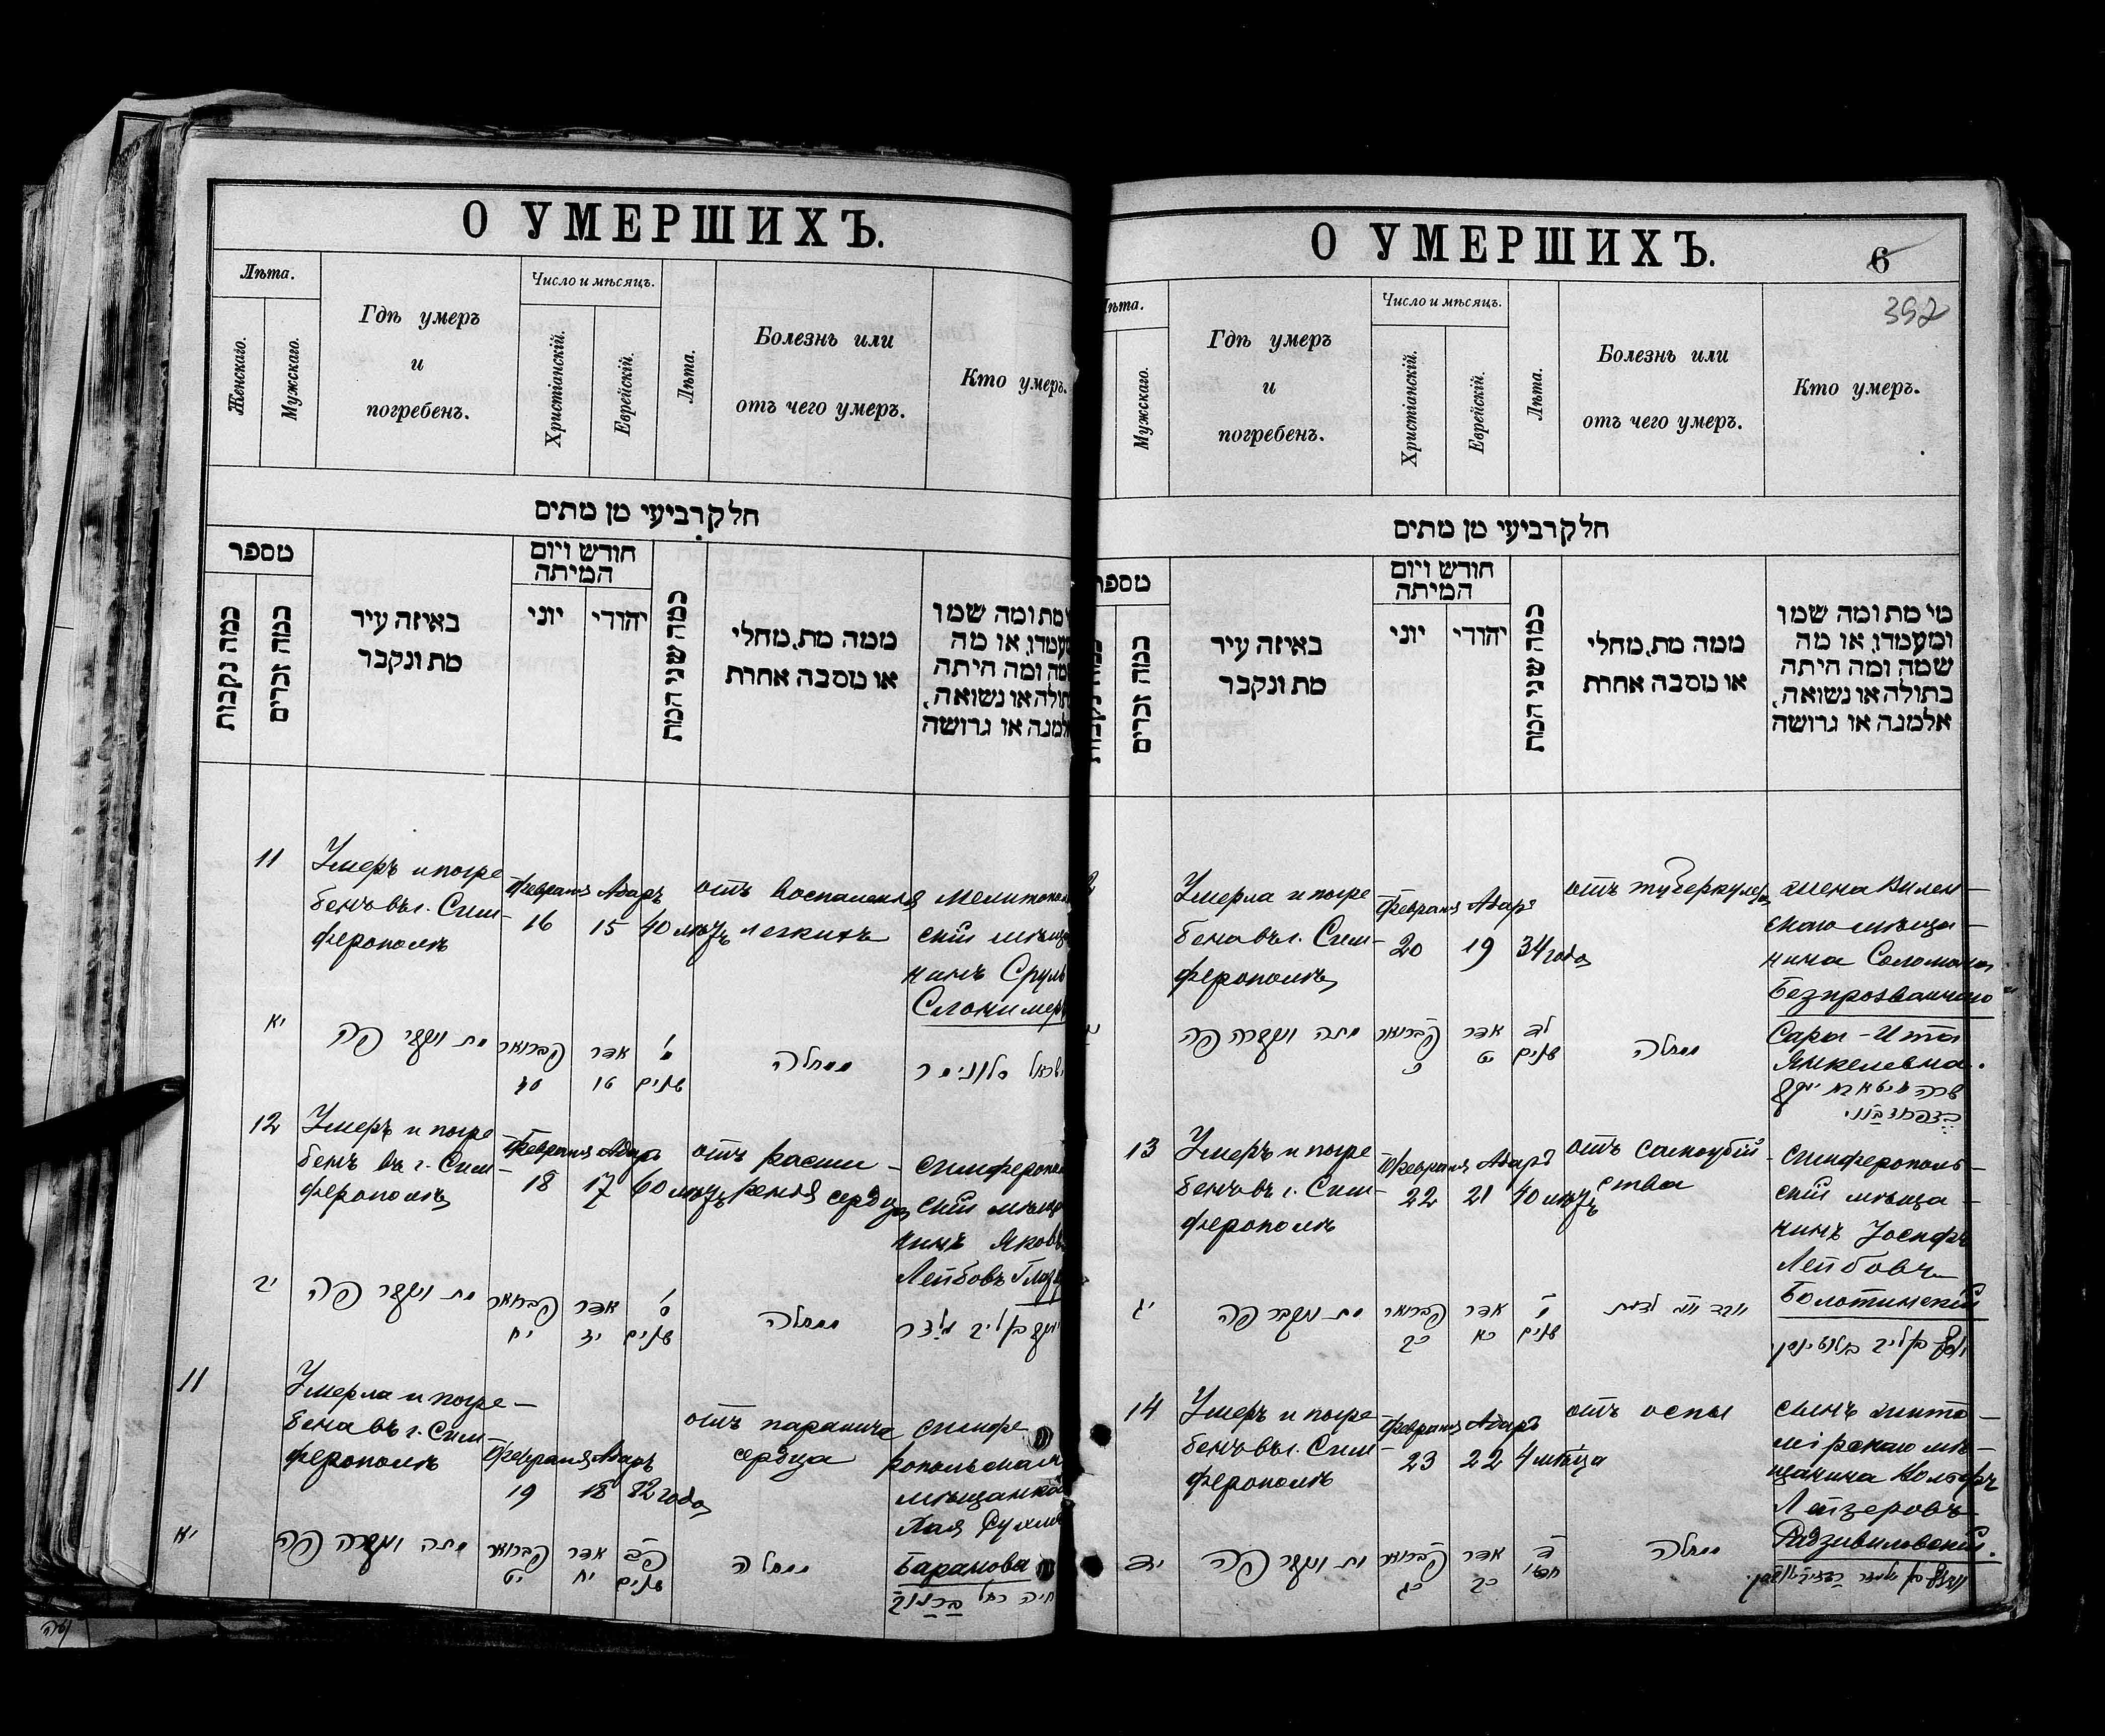 О УМЕРШИХЪ.
Лѣта.
Женскаго.
Мужскаго.
Гдѣ умеръ
и
погребенъ.
Число и мѣсяцъ.
Христіанскій.
Еврейскій.
Лѣта.
Болезнь или
отъ чего умеръ.
Кто умеръ.
חלק רביעי מן מתים
מספר
כמה נקבות
כמה זכרים
באיזה עיר
מת ונקבר
חודש ויום
המיתה
יוני
יהודי
כמה שני המת
ממה מת, מחלי
או מסבה אחרת
מת ומה שמו
ומעמדו, או מה
שמה ומה היתה
בתולה או נשואה,
אלמנה או גרושה
11
Умеръ и погре
бенъ въ г. Сим-
ферополѣ
Февраля
16
Адаръ
15
40 лѣтъ
отъ воспаления
легкихъ
Мелитополь
скій мѣща
нинъ Сруль
Слонимеръ
יא
מת ונקבר פה
פברואר
אדר
טו
מ'
שנים
מחלה
ישראל סלונימר
12
Умеръ и погре
бенъ въ г. Сим-
ферополѣ
Февраля
18
Адаръ
17
60 лѣтъ
отъ расши-
ренія сердца
Симферополь
скій мѣща
нинъ Яковъ
Лейбовъ
יב
מת ונקבר פה
פברואר
יח
אדר
יז
ס'
שנים
מחלה
יעקב בן ליב
11
Умерла и погре-
бена въ г. Сим-
ферополѣ
Февраля
19
Адаръ
18
82 года
отъ паралича
сердца
Симфе
ропольская
мѣщанка
Баранова
יא
מתה ונקברה פה
פברואר
יט
אדר
יח
פב
שנים
מחלה
חיה רחל
О УМЕРШИХЪ.
6
392
Лѣта.
Мужскаго.
Гдѣ умеръ
и
погребенъ.
Число и мѣсяцъ.
Христіанскій.
Еврейскій.
Лѣта.
Болезнь или
отъ чего умеръ.
Кто умеръ.
חלק רביעי מן מתים
מספר
כמה נקבות
כמה זכרים
באיזה עיר
מת ונקבר
חודש ויום
המיתה
יוני
יהודי
כמה שני המת
ממה מת, מחלי
או מסבה אחרת
מי מת ומה שמו
ומעמדו, או מה
שמה ומה היתה
בתולה או נשואה,
אלמנה או גרושה
Умерла и погре
бена въ г. Сим-
ферополѣ
Февраля
20
Адаръ
19
34 года
отъ туберкулеза
жена Вилен-
скаго мѣща-
нина Соломона
Безпрозваннаго
Сара-Ита
Янкелевна.
מתה ונקברה פה
פברואר
כ
אדר
יט
לד
שנים
מחלה
13
Умеръ и погре
бенъ въ г. Сим-
ферополѣ
Февраля
22
Адаръ
21
40 лѣтъ
отъ самоубій-
ства
Симферополь-
скій мѣща-
нинъ Іосифъ
Лейбовъ
Болотинскій
יג
מת ונקבר פה
פברואר
כב
אדר
כא
מ
שנים
יוסף בן ליב באלאטינסקי
14
Умеръ и погре
бенъ въ г. Сим-
ферополѣ
Февраля
23
Адаръ
22
4 мѣсяца
отъ оспы
сынъ Жито-
мірскаго мѣ-
щанина
Лейзеровъ
Радзивиловскій.
יד
מת ונקבר פה
פברואר
כג
אדר
כב
ד
חדשי
מחלה